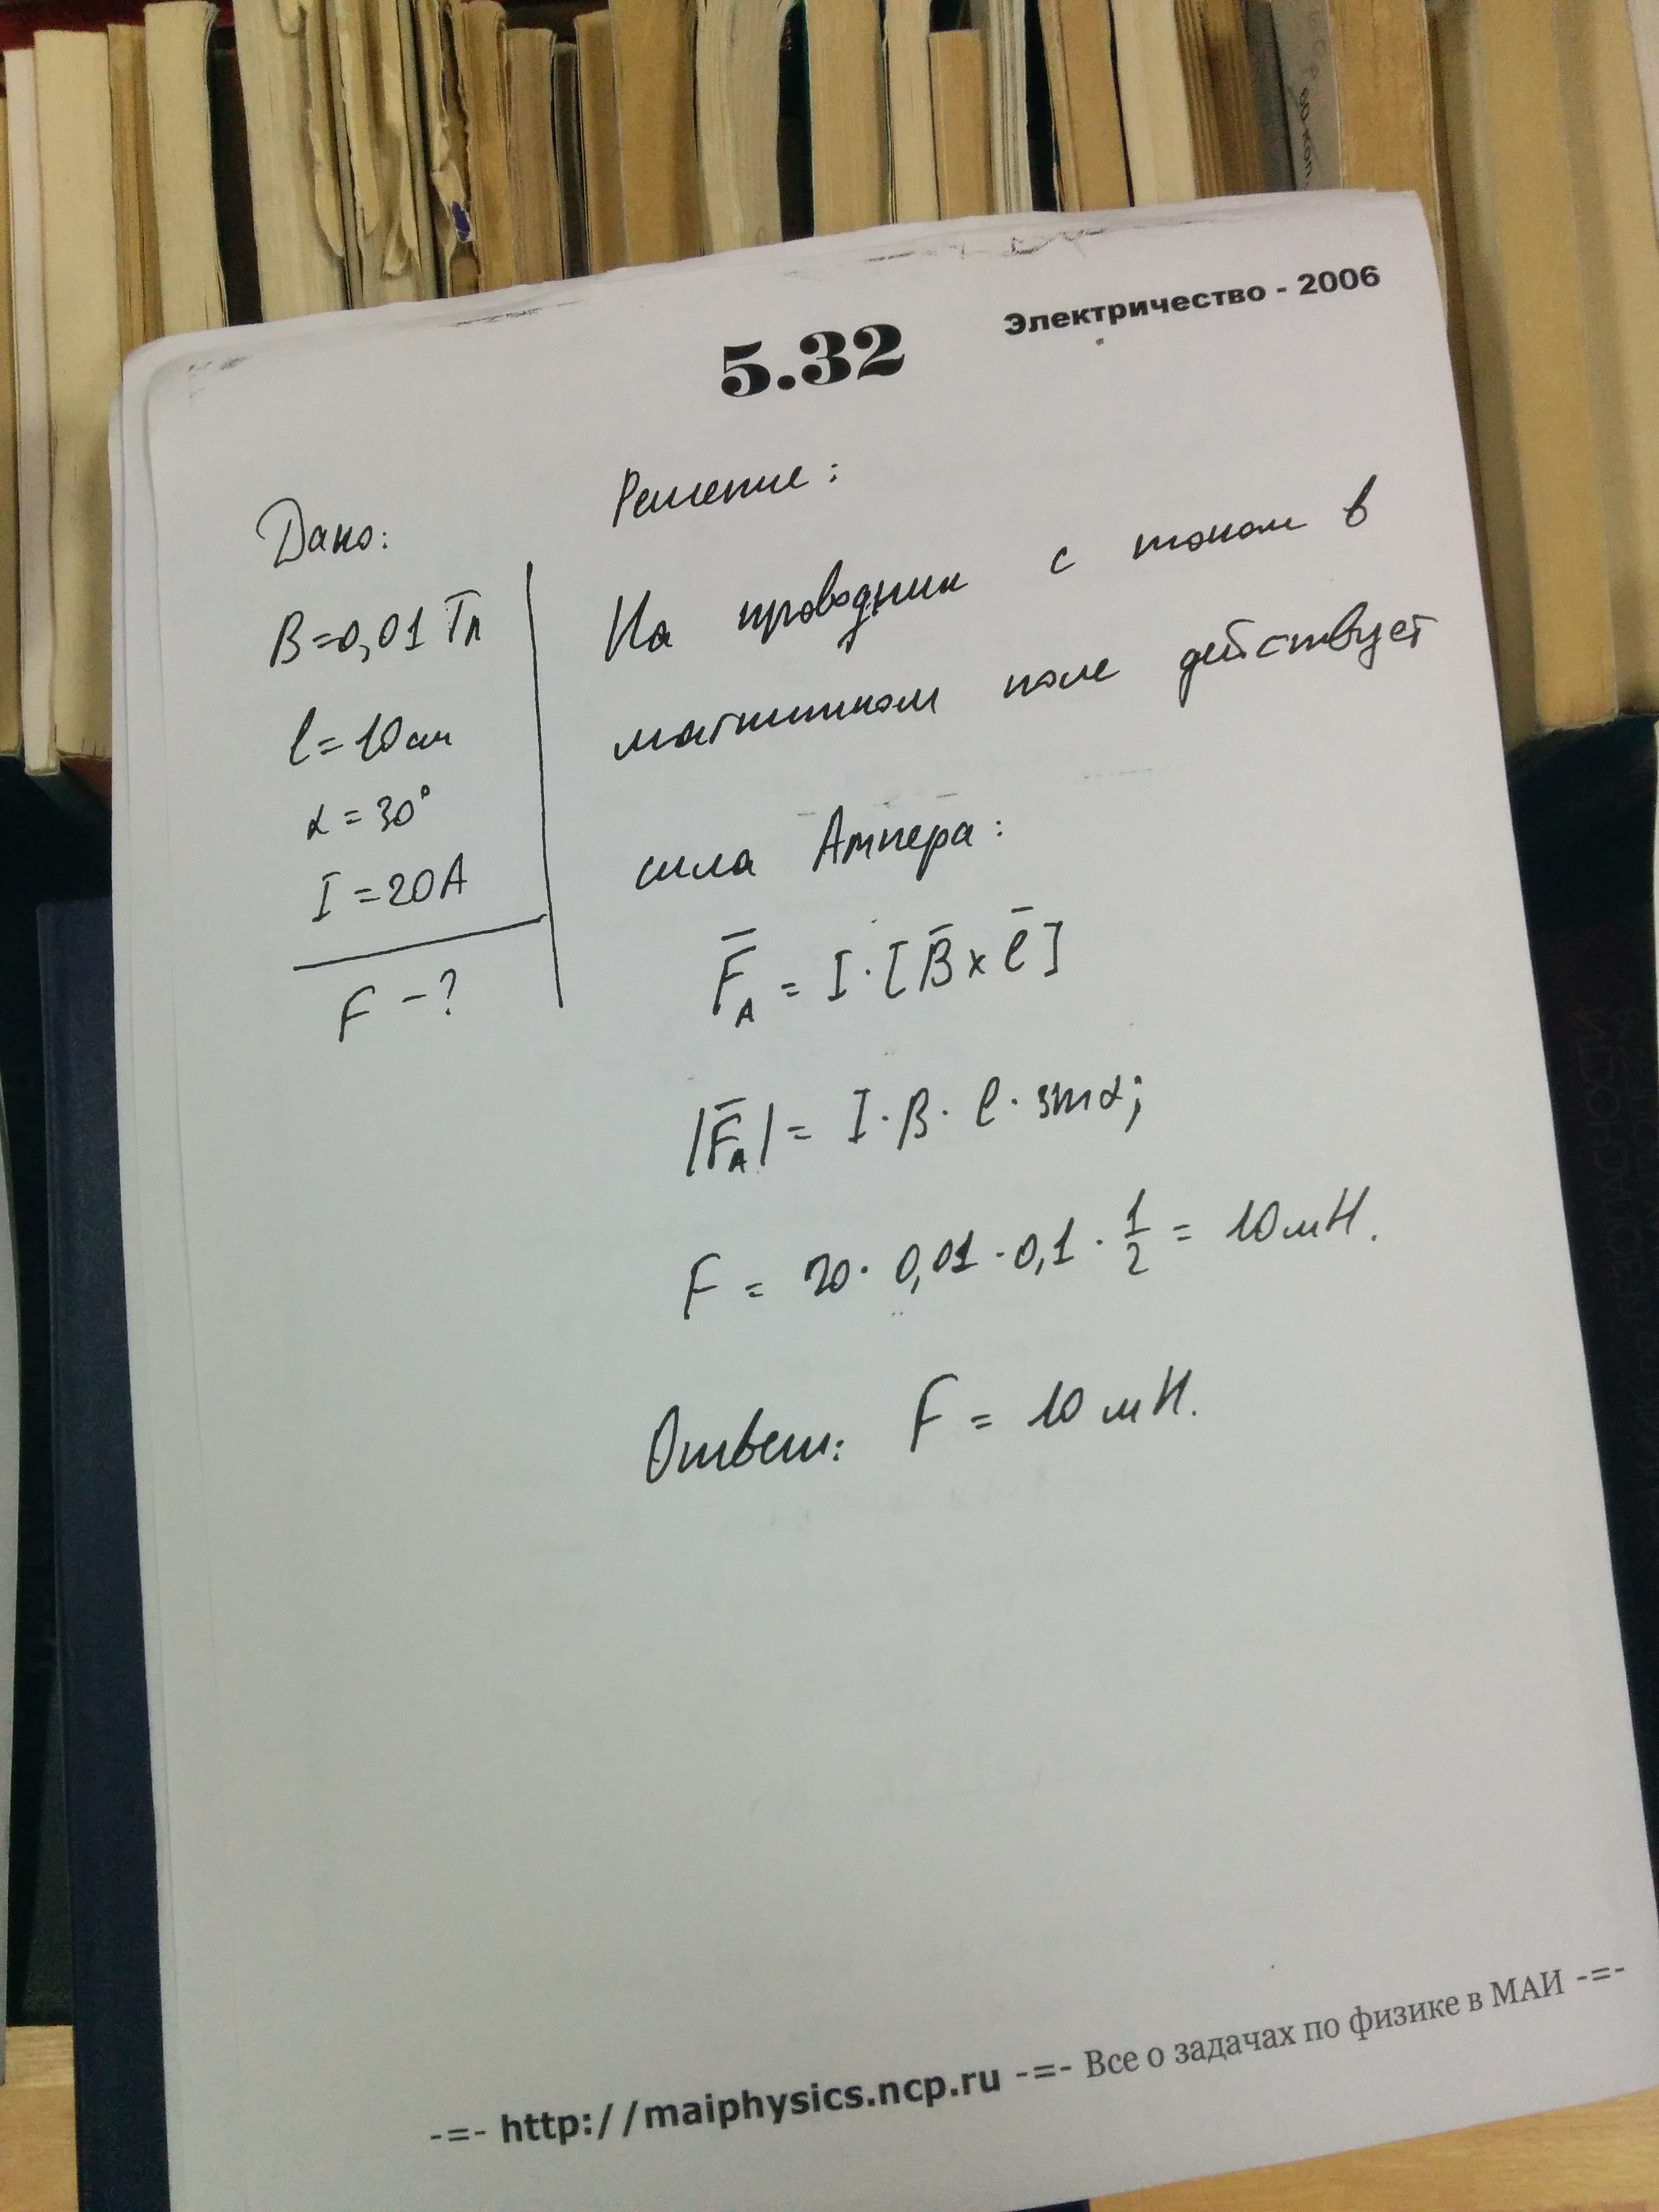 Электричество - 2006
5.32
Дано:
B=0,01 Тл
l=10см
α=30°
I=20А
F-?
Решение:
На проводник с током в
магнитном поле действует
сила Ампера:
F̅_A = I·[B̅×l̅]
|F̅_A| = I·B·l·sinα;
F = 20·0,01·0,1·1/2 = 10мН.
Ответ: F = 10мН.
-=- http://maiphysics.ncp.ru -=- Все о задачах по физике в МАИ -=-